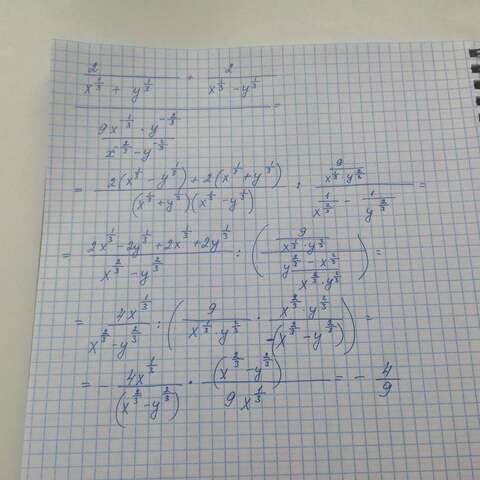 \frac{\frac{2}{x^{\frac{1}{3}} + y^{\frac{1}{3}}} + \frac{2}{x^{\frac{1}{3}} - y^{\frac{1}{3}}}}{\frac{9x^{-\frac{1}{3}} \cdot y^{-\frac{2}{3}}}{x^{-\frac{2}{3}} - y^{-\frac{2}{3}}}} =
= \frac{2(x^{\frac{1}{3}} - y^{\frac{1}{3}}) + 2(x^{\frac{1}{3}} + y^{\frac{1}{3}})}{(x^{\frac{1}{3}} + y^{\frac{1}{3}})(x^{\frac{1}{3}} - y^{\frac{1}{3}})} : \frac{\frac{9}{x^{\frac{1}{3}} \cdot y^{\frac{2}{3}}}}{\frac{1}{x^{\frac{2}{3}}} - \frac{1}{y^{\frac{2}{3}}}} =
= \frac{2x^{\frac{1}{3}} - 2y^{\frac{1}{3}} + 2x^{\frac{1}{3}} + 2y^{\frac{1}{3}}}{x^{\frac{2}{3}} - y^{\frac{2}{3}}} : \left( \frac{\frac{9}{x^{\frac{1}{3}} \cdot y^{\frac{2}{3}}}}{\frac{y^{\frac{2}{3}} - x^{\frac{2}{3}}}{x^{\frac{2}{3}} \cdot y^{\frac{2}{3}}}} \right) =
= \frac{4x^{\frac{1}{3}}}{x^{\frac{2}{3}} - y^{\frac{2}{3}}} : \left( \frac{9}{x^{\frac{1}{3}} \cdot y^{\frac{2}{3}}} \cdot \frac{x^{\frac{2}{3}} \cdot y^{\frac{2}{3}}}{-(x^{\frac{2}{3}} - y^{\frac{2}{3}})} \right) =
= - \frac{4x^{\frac{1}{3}}}{(x^{\frac{2}{3}} - y^{\frac{2}{3}})} \cdot \frac{(x^{\frac{2}{3}} - y^{\frac{2}{3}})}{9x^{\frac{1}{3}}} = - \frac{4}{9}